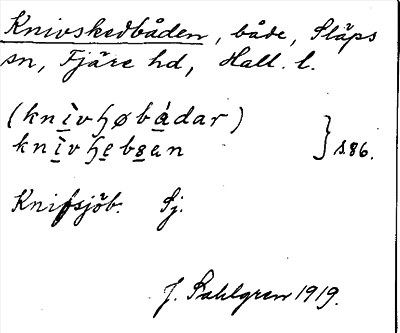 Knivskedbåden, både, Släps
sn, Fjäre hd, Hall. l.
(knìvꜧøbádar)
knìvꜧebsen } 186.
Knifsjöb. Sj.
J. Sahlgren 1919.